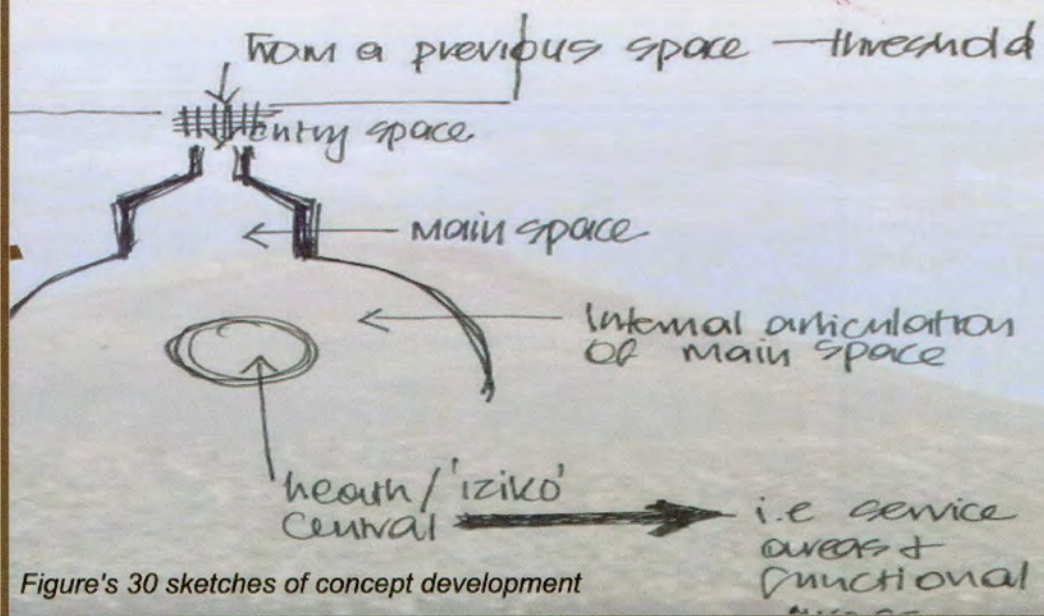 From a previous space — threshold
entry space
main space
Internal articulation
of main space
hearth / 'iziko'
central
i.e service
areas +
functional
Figure's 30 sketches of concept development